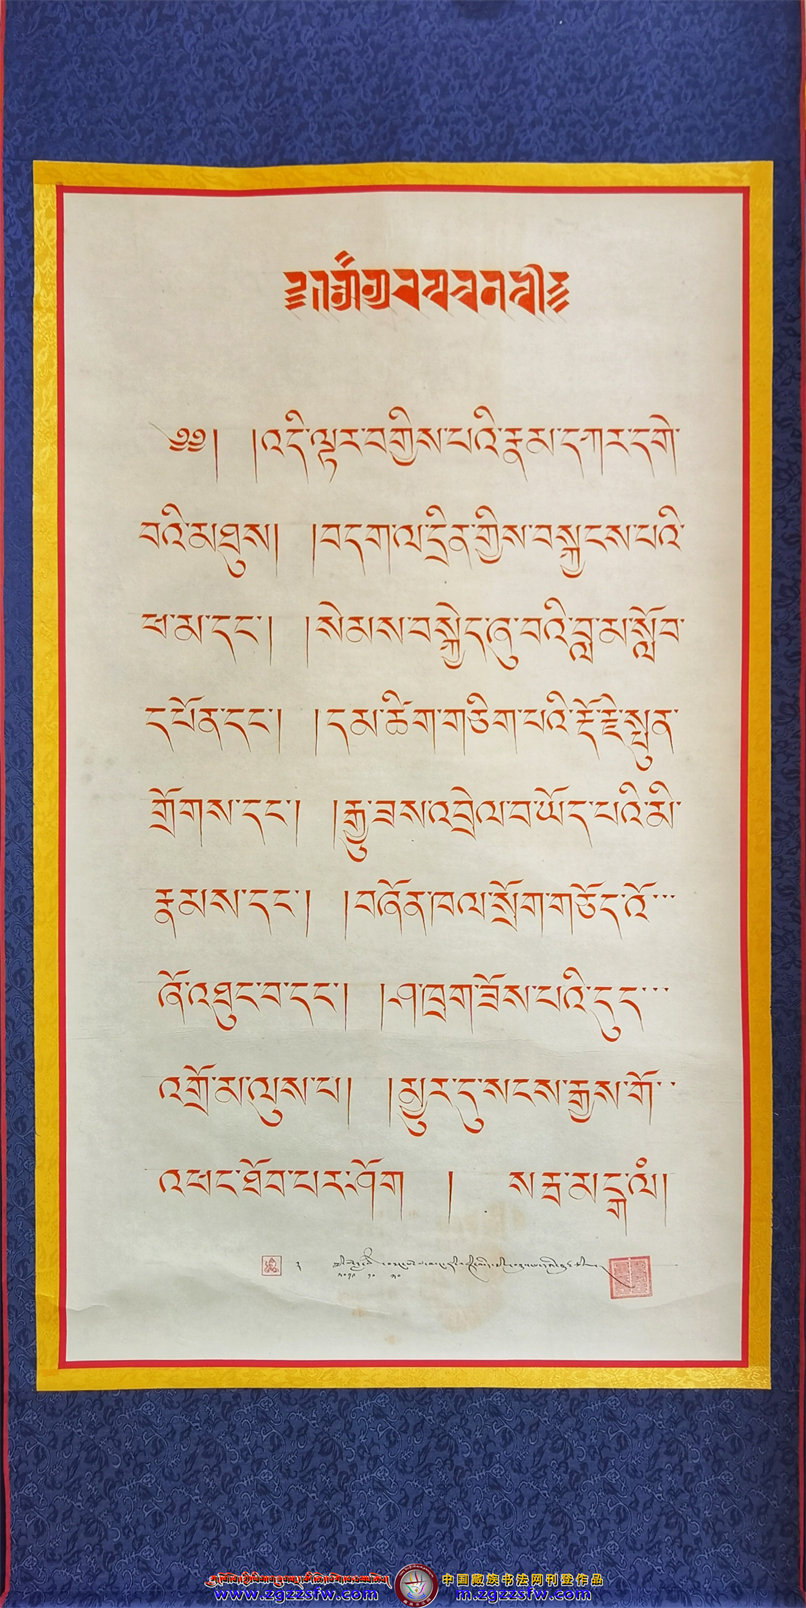 ༄༅། །འདི་ལྟར་བགྱིས་པའི་རྣམ་དཀར་དགེ་
བའི་མཐུས། །བདག་ལ་དྲིན་གྱིས་བསྐྱངས་པའི་
ཕ་མ་དང་། །སེམས་བསྐྱེད་ཞུ་བའི་བླ་མ་སློབ་
དཔོན་དང་། །དམ་ཚིག་གཅིག་པའི་རྡོ་རྗེ་སྤུན་
གྲོགས་དང་། །རྒྱུ་ཟས་འབྲེལ་བ་ཡོད་པའི་མི་
རྣམས་དང་། །བཞོན་ཁལ་སྲོག་གཅོད་འོ་་་
ཞོ་འཐུང་བ་དང་། །ཤ་ཁྲག་ཟོས་པའི་དུད་་་
འགྲོ་མ་ལུས་པ། །མྱུར་དུ་སངས་རྒྱས་གོ་་
འཕང་ཐོབ་པར་ཤོག །སརྦ་མངྒ་ལཾ།
中国藏族书法网刊登作品
www.zgzzsfw.com
m.zgzzsfw.com